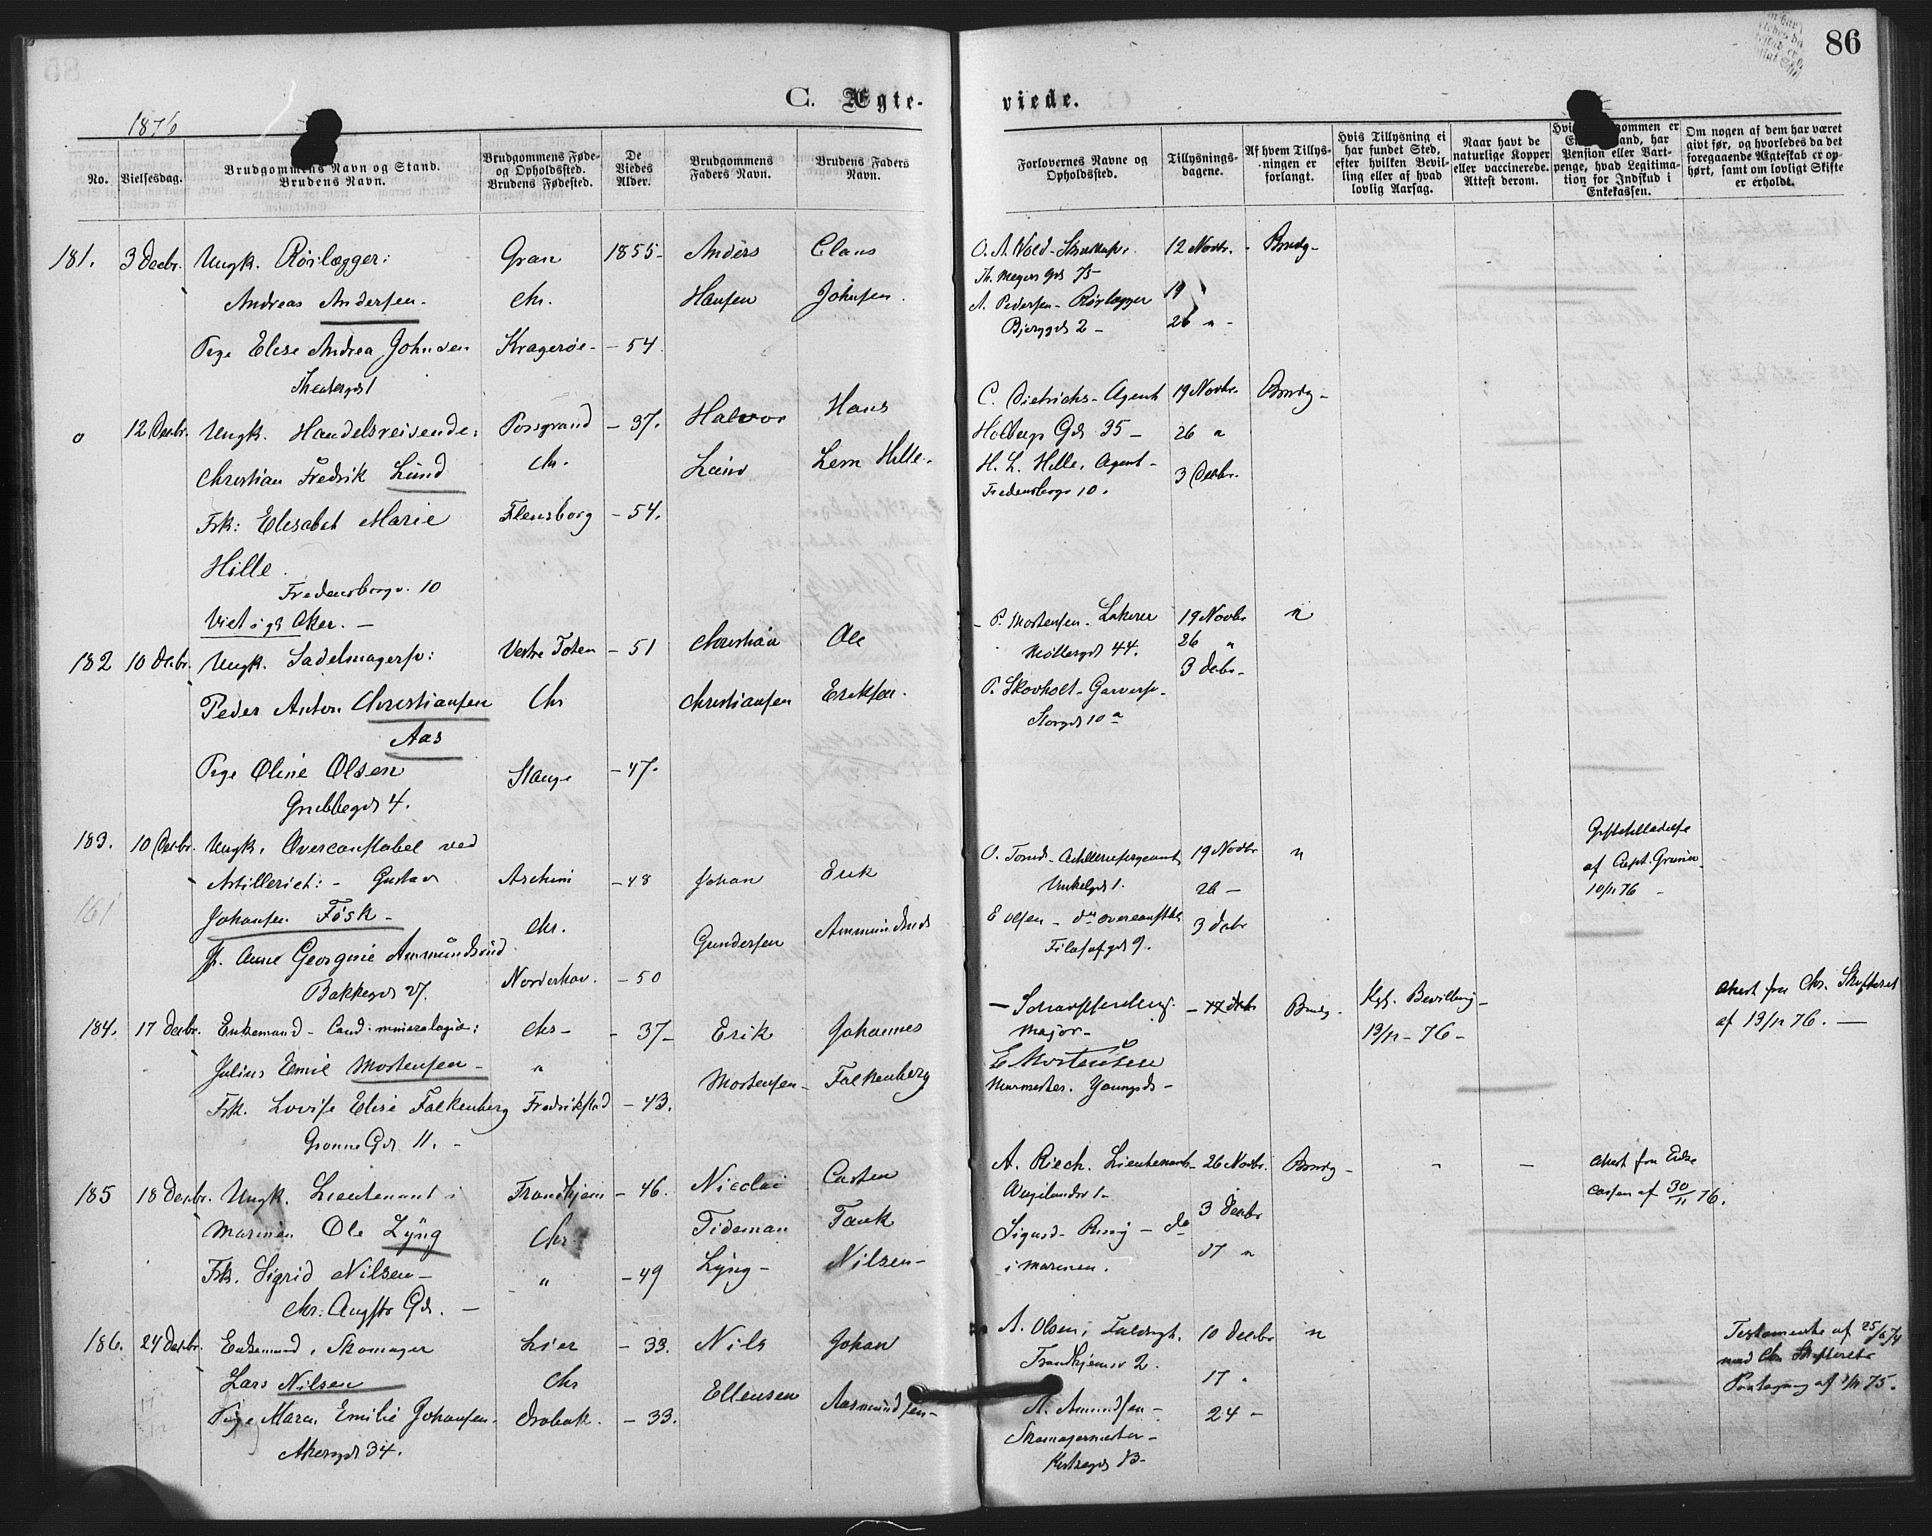 86
C. Ægte-
viede.
1876
No.
Vielsesdag.
Brudgommens Navn og Stand.
Brudens Navn.
Brudgommens Føde-
og Opholdssted.
Brudens Fødested.
De
Viedes
Alder.
Brudgommens
Faders Navn.
Brudens Faders
Navn.
Forlovernes Navne og
Opholdssted.
Tillysnings-
dagene.
Af hvem Tillys-
ningen er
forlangt.
Hvis Tillysning ei
har fundet Sted,
efter hvilken Bevil-
ling eller af hvad
lovlig Aarsag.
Naar havt de
naturlige Kopper
eller vaccinerede.
Attest derom.
ommen er
and, har
Pension eller Vart-
penge, hvad Legitima-
tion for Indskud i
Enkekassen.
Om nogen af dem har været
givt før, og hvorledes da det
foregaaende Ægteskab er op-
hørt, samt om lovligt Skifte
er erholdt.
181. 3 Decbr. Ungk. Rørlægger: Gran 1855- Anders Claus
Andreas Andersen. Chr. Hansen Johnsen.
Pige Elise Andrea Johnsen Kragerøe- -54.
Theatergd 1
O. A. Wold- 12 Novbr. - Brudg-
Th. Meyers Gd 75-
A. Pedersen- Rørlægger 19
Bjerggd 2- 26 "-
o 12 Decbr. Ungk. Handelsreisende: Porsgrund -37. Halvor Hans
Christian Fredrik Lund Chr. Lund Lem Hille.
Frk: Elisabet Marie Flensborg -54.
Hille.
Fredensborgv. 10
Viet i Aker.-
C. Dietrichs- Agent 19 Novbr. Brudg-
Holbergs Gd 35- 26 "
H. L. Hille, Agent- 3 Decbr.
Fredensborgv 10.
182 10 Decbr. Ungk. Sadelmagersv: Vestre Toten -51 Christian Ole
Peder Anton Christiansen Chr Christiansen Eriksen.
Aas
Pige Oline Olsen Stange -47.
Grubbegd 4.
P. Mortensen. Lakerer 19 Novbr "
Møllergd 44. 26 "
3 Decbr-
P. Skovholt- Garversv.
Storgd 10 a
183. 10 Decbr. Ungk. Overconstabel ved
Artilleriet:- Gustav -48 Johan Erik
161
Johansen Fösk- Chr. Gundersen Ammundsrud
P. Anne Georgine Ammundsrud Norderhov. -50
Bakkegd 27.
Artillerisergeant 19 Novbr "
1. 26-
E Olsen- 3 Decbr
Filosofgd 9.
Giftetilladelse
af Capt.
10/11 76-
184. 17 Decbr. Enkemand- Cand: mineralogiæ: Chr- -37- Erik Johannes
Julius Emil Mortensen- " Mortensen- Falkenberg
Frk. Lovise Elise Falkenberg Fredrikstad -43.
Grønne Gd. 11.-
- Scharffenberg.
Major-
E Mortensen
Murmester. Youngsgd-
- 17 Decbr Brudg. Kgl. Bevilling-
13/11-76-
Attest fra Chr. Skifteret
af 13/11 76.-
185 18 Decbr. Ungk. Lieutenant i Trondhjem -46. Nicolai Carsten
Marinen Ole Lyng Chr. Tideman Tank
Frk. Sigrid Nilsen- " -49 Lyng- Nilsen-
Chr. Augsts Gd.-
A. Riech. Lieutenant- 26 Novbr. Brudg- - -
3 Decbr
Sigurd - do 17 "
i Marinen.
Attest fra Enke
cassen af 30/11 76.
186. 24 Decbr. Enkemand, Skomager Lier -33. Nils Johan
Lars Nilsen Chr Ellensen Aasmundsen-
Pige Maren Emilie Johansen. Drøbak. -33.
Akersgd 34.
A. Olsen, 10 Decbr "
Trondhjemsv 2. 17 "
A. Amundsen- 24-
Skomagermester-
Kirkegd 13-
Testamente af 25/6 74
med Chr Skifterets
Paategning af 75.